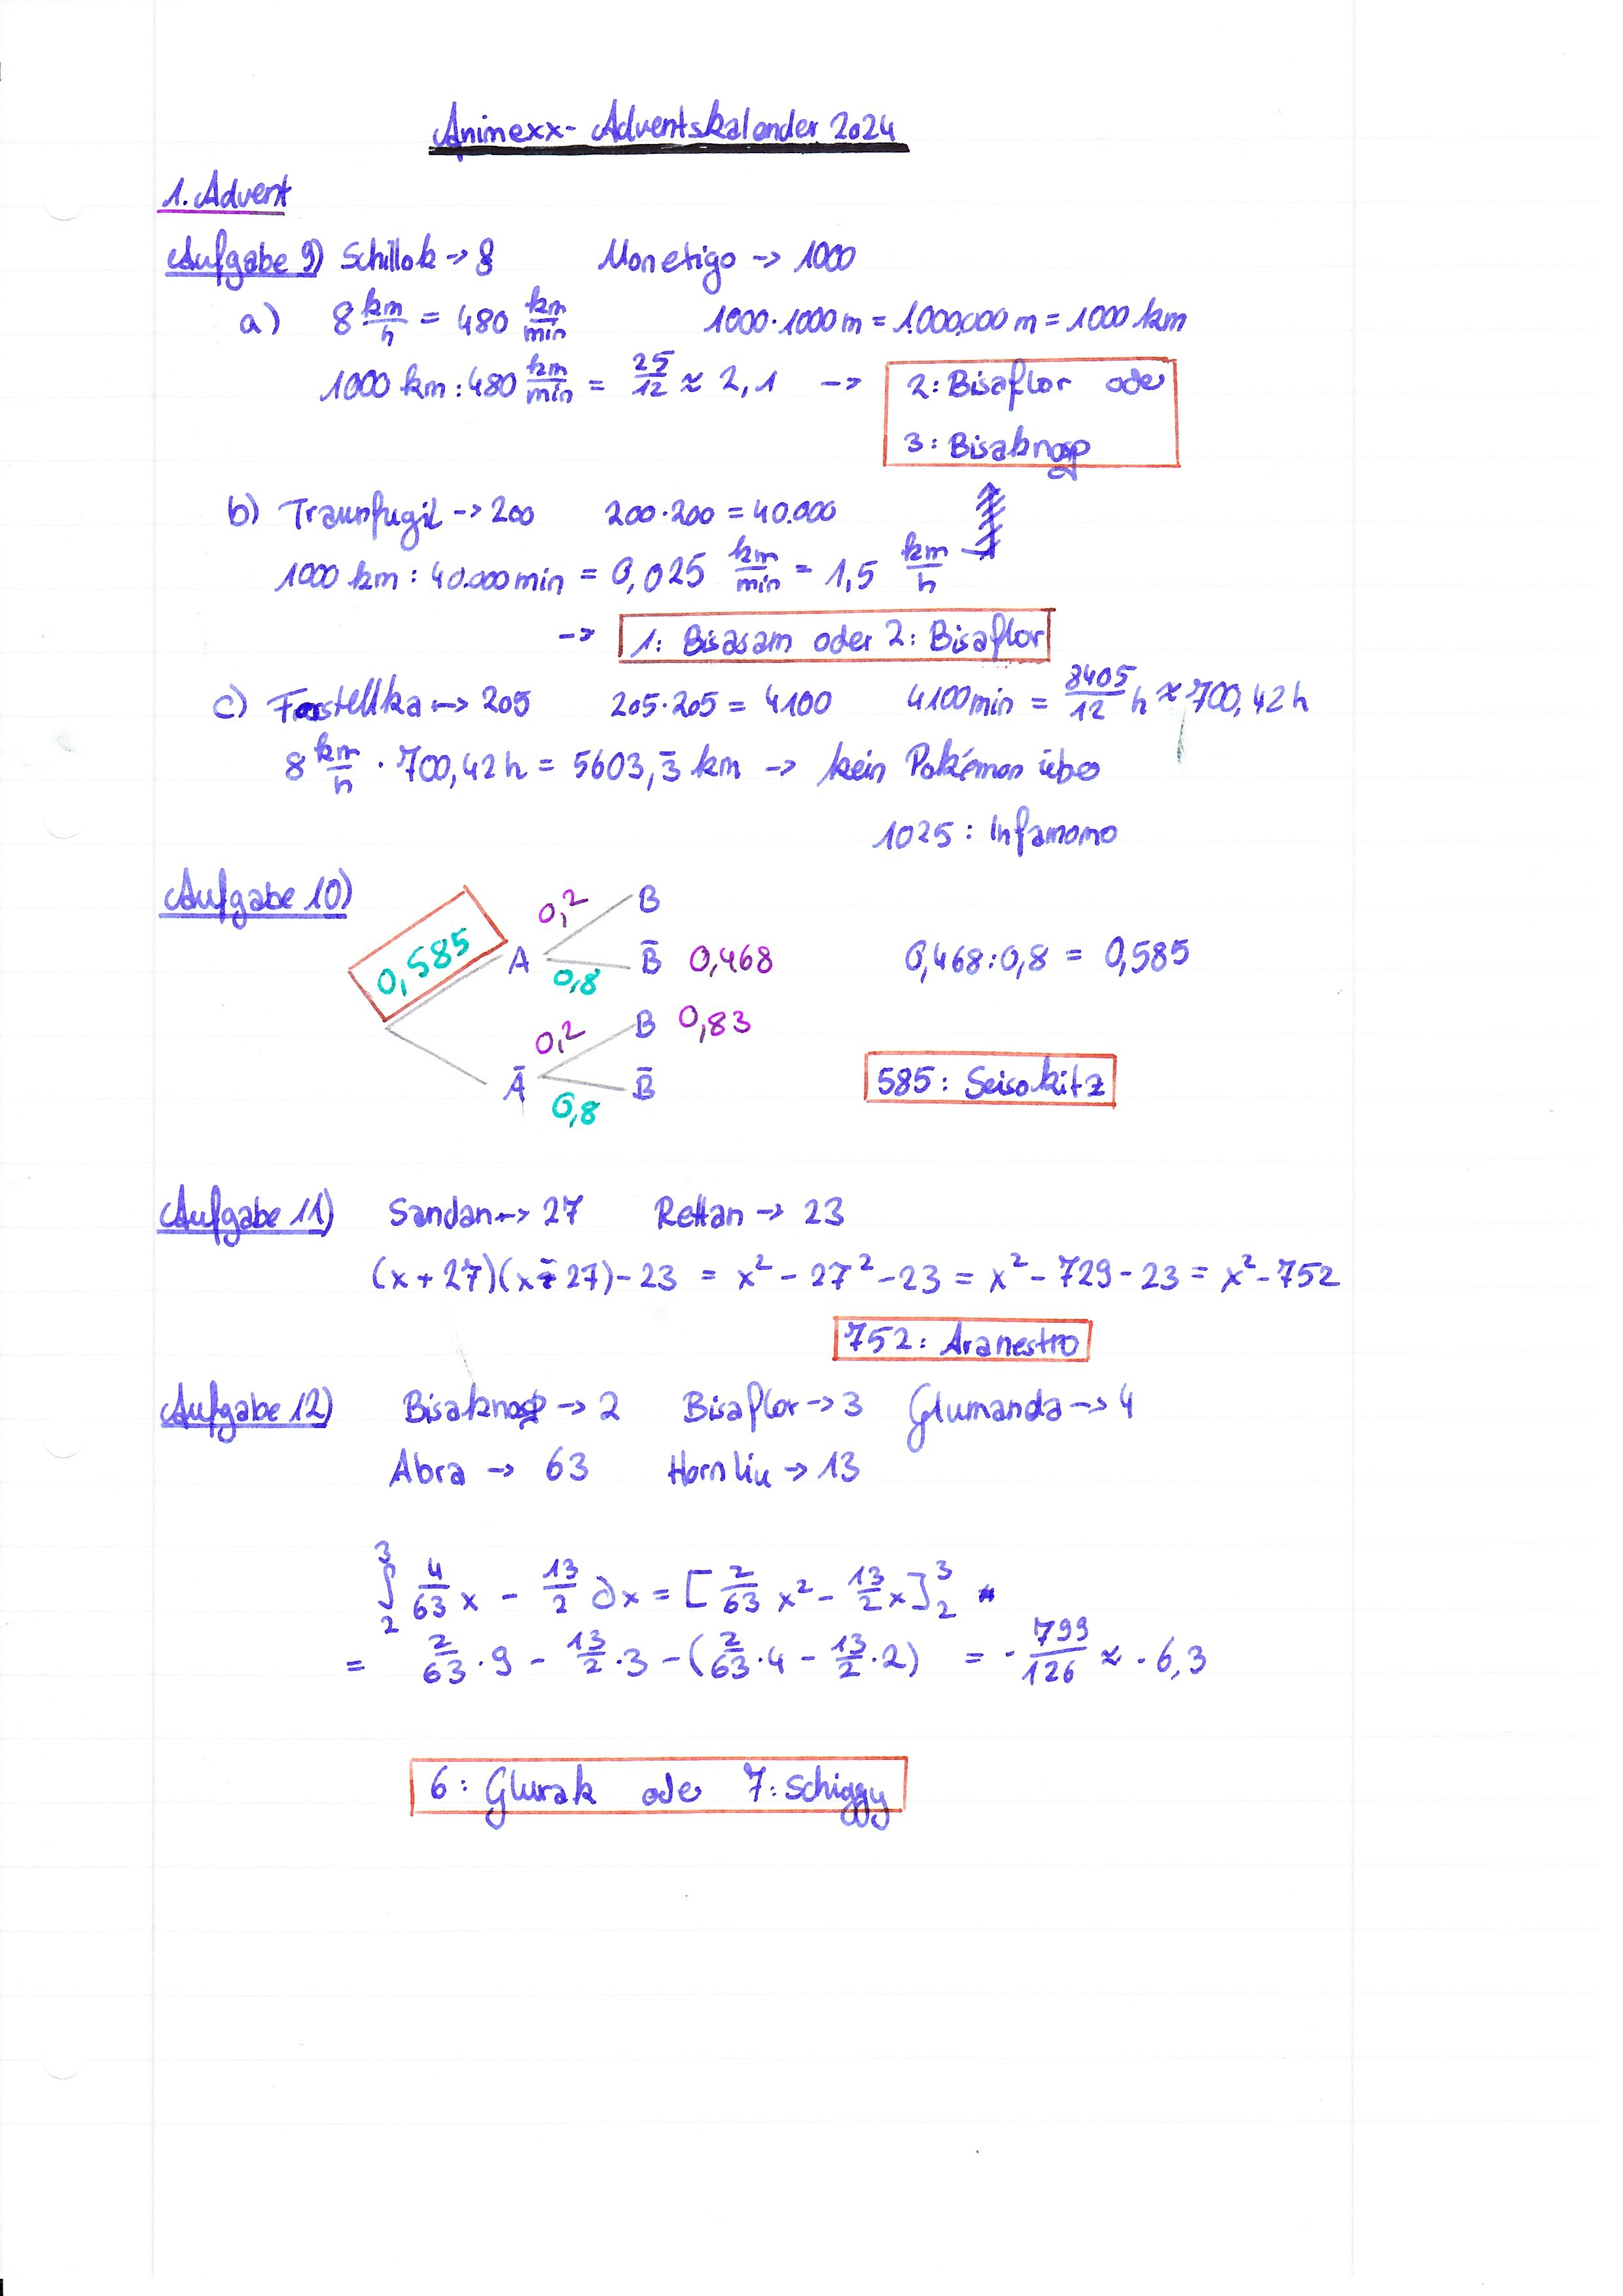 Animexx-Adventskalender 2024
1. Advent
Aufgabe 9) Schillok -> 8 Monetigo -> 1000
a) 8 km/h = 480 km/min 1000·1000 m = 1.000.000 m = 1000 km
1000 km : 480 km/min = 25/12 ≈ 2,1 -> 2: Bisaflor oder
3: Bisaknosp
b) Traunfugil -> 200 200·200 = 40.000
1000 km : 40.000 min = 0,025 km/min = 1,5 km/h
-> 1: Bisasam oder 2: Bisaflor
c) Forstellka -> 205 205·205 = 4100 4100 min = 8405/12 h ≈ 700,42 h
8 km/h · 700,42 h = 5603,3̄ km -> kein Pokémon über
1025: Infamomo
Aufgabe 10)
0,585 A 0,2 B
0,8 B̄ 0,468 0,468:0,8 = 0,585
Ā 0,2 B 0,83
0,8 B̄ 585: Sesokitz
Aufgabe 11) Sandan -> 27 Rettan -> 23
(x + 27)(x - 27) - 23 = x² - 27² - 23 = x² - 729 - 23 = x² - 752
752: Aranestro
Aufgabe 12) Bisaknosp -> 2 Bisaflor -> 3 Glumanda -> 4
Abra -> 63 Hornliu -> 13
∫₂³ 4/63 x - 13/2 ∂x = [2/63 x² - 13/2 x]₂³
= 2/63 · 9 - 13/2 · 3 - (2/63 · 4 - 13/2 · 2) = - 799/126 ≈ - 6,3
6: Glurak oder 7: Schiggy